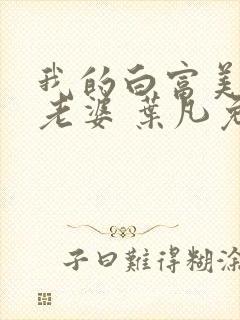 我的白富美
老婆 葉凡免
子曰難得糊涂